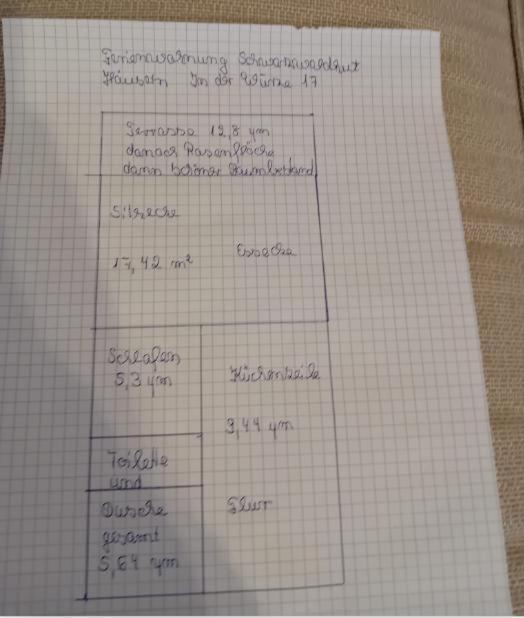 Ferienwohnung Schwarzwaldhut
Häusern In der Würze 17
Terrasse 12,8 qm
danach Rasenfläche
dann schöner Baumbestand
Sitzecke
Essecke
17,42 m²
Schlafen
5,3 qm
Küchenzeile
3,44 qm
Toilette
und
Dusche
gesamt
5,64 qm
Flur